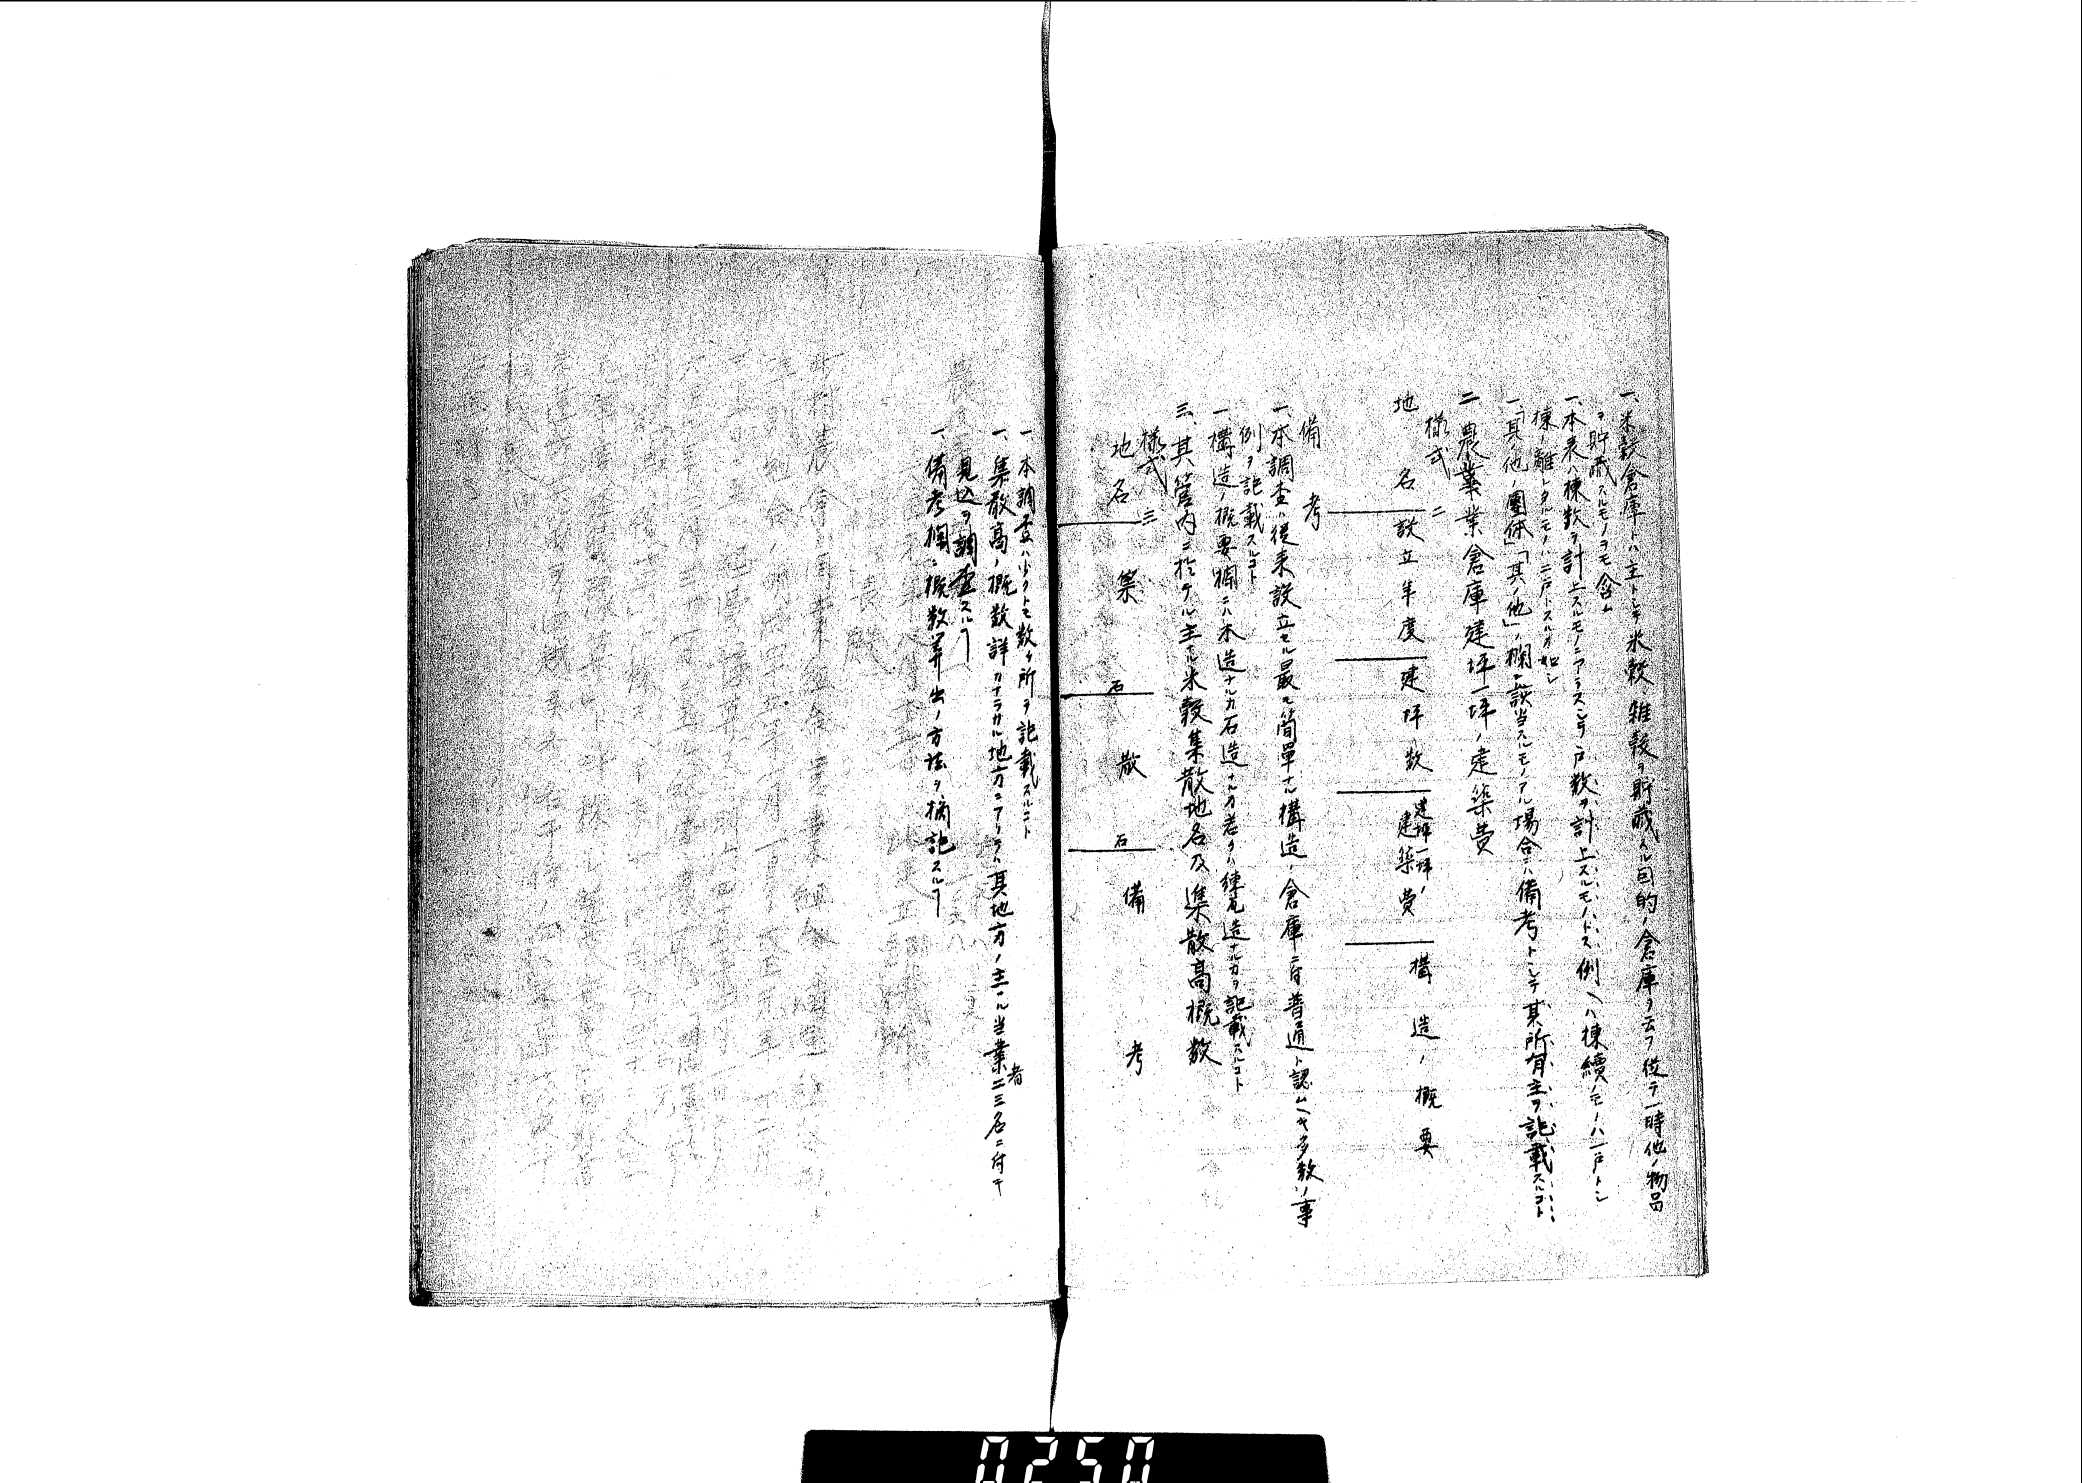 一、米穀倉庫トハ主トシテ米穀、雑穀ヲ貯蔵スル目的ノ倉庫ヲ云フ従テ一時他ノ物品
ヲ貯蔵スルモノヲモ含ム
一、本表ハ棟数ヲ計上スルモノニアラスシテ戸数ヲ計上スルモノトス例ヘハ棟續ノモノハ一戸トシ
棟ノ離レタルモノハ二戸トスルカ如シ
一、「其ノ他ノ團体」「其ノ他」ノ欄ニ該当スルモノアル場合ニハ備考トシテ其所有主ヲ記載スルコト
二、農業倉庫建坪一坪ノ建築費
様式二
地名 設立年度 建坪数 建坪一坪ノ建築費 構造ノ概要
備考
一、本調査ハ従来設立セル最モ簡單ナル構造ノ倉庫ニ付普通ト認ムヘキ多数ノ事
例ヲ記載スルコト
一、構造ノ概要欄ニハ木造ナルカ石造ナルカ若クハ煉瓦造ナルカヲ記載スルコト
三、其管内ニ於ケル主ナル米穀集散地名及集散高概数
様式三
地名 集 石 散 石 備考
一、本調査ハ少クトモ数ケ所ヲ記載スルコト
一、集散高ノ概数詳カナラサル地方ニアリテハ其地方ノ主ナル当業者二三名ニ付キ
見込ヲ調査スルコト
一、備考欄ニ概数算出ノ方法ヲ摘記スルコト
0250